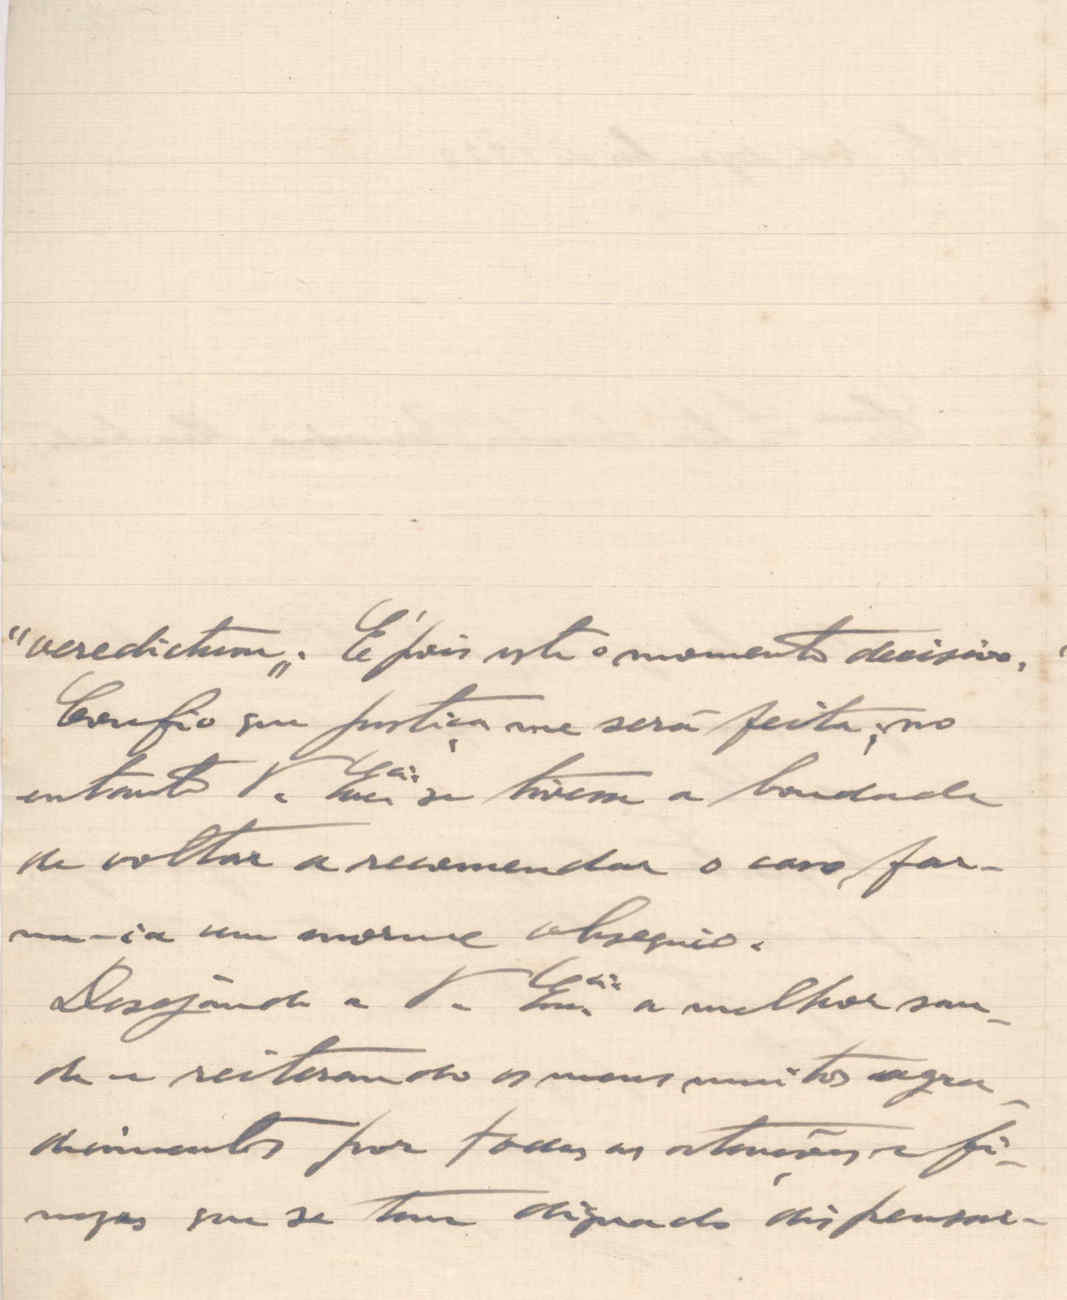 "veredictum„. É pois este o momento decisivo.
Confio que justiça me será feita; no
entanto V. Exciª: se tivesse a bondade
de voltar a recomendar o caso far-
me-ia um enorme obsequio.
Desejando a V. Exciª: a melhor sau-
de e reiterando os meus muitos agra-
decimentos por todas as atenções e fi-
nezas que se tem dignado dispensar-